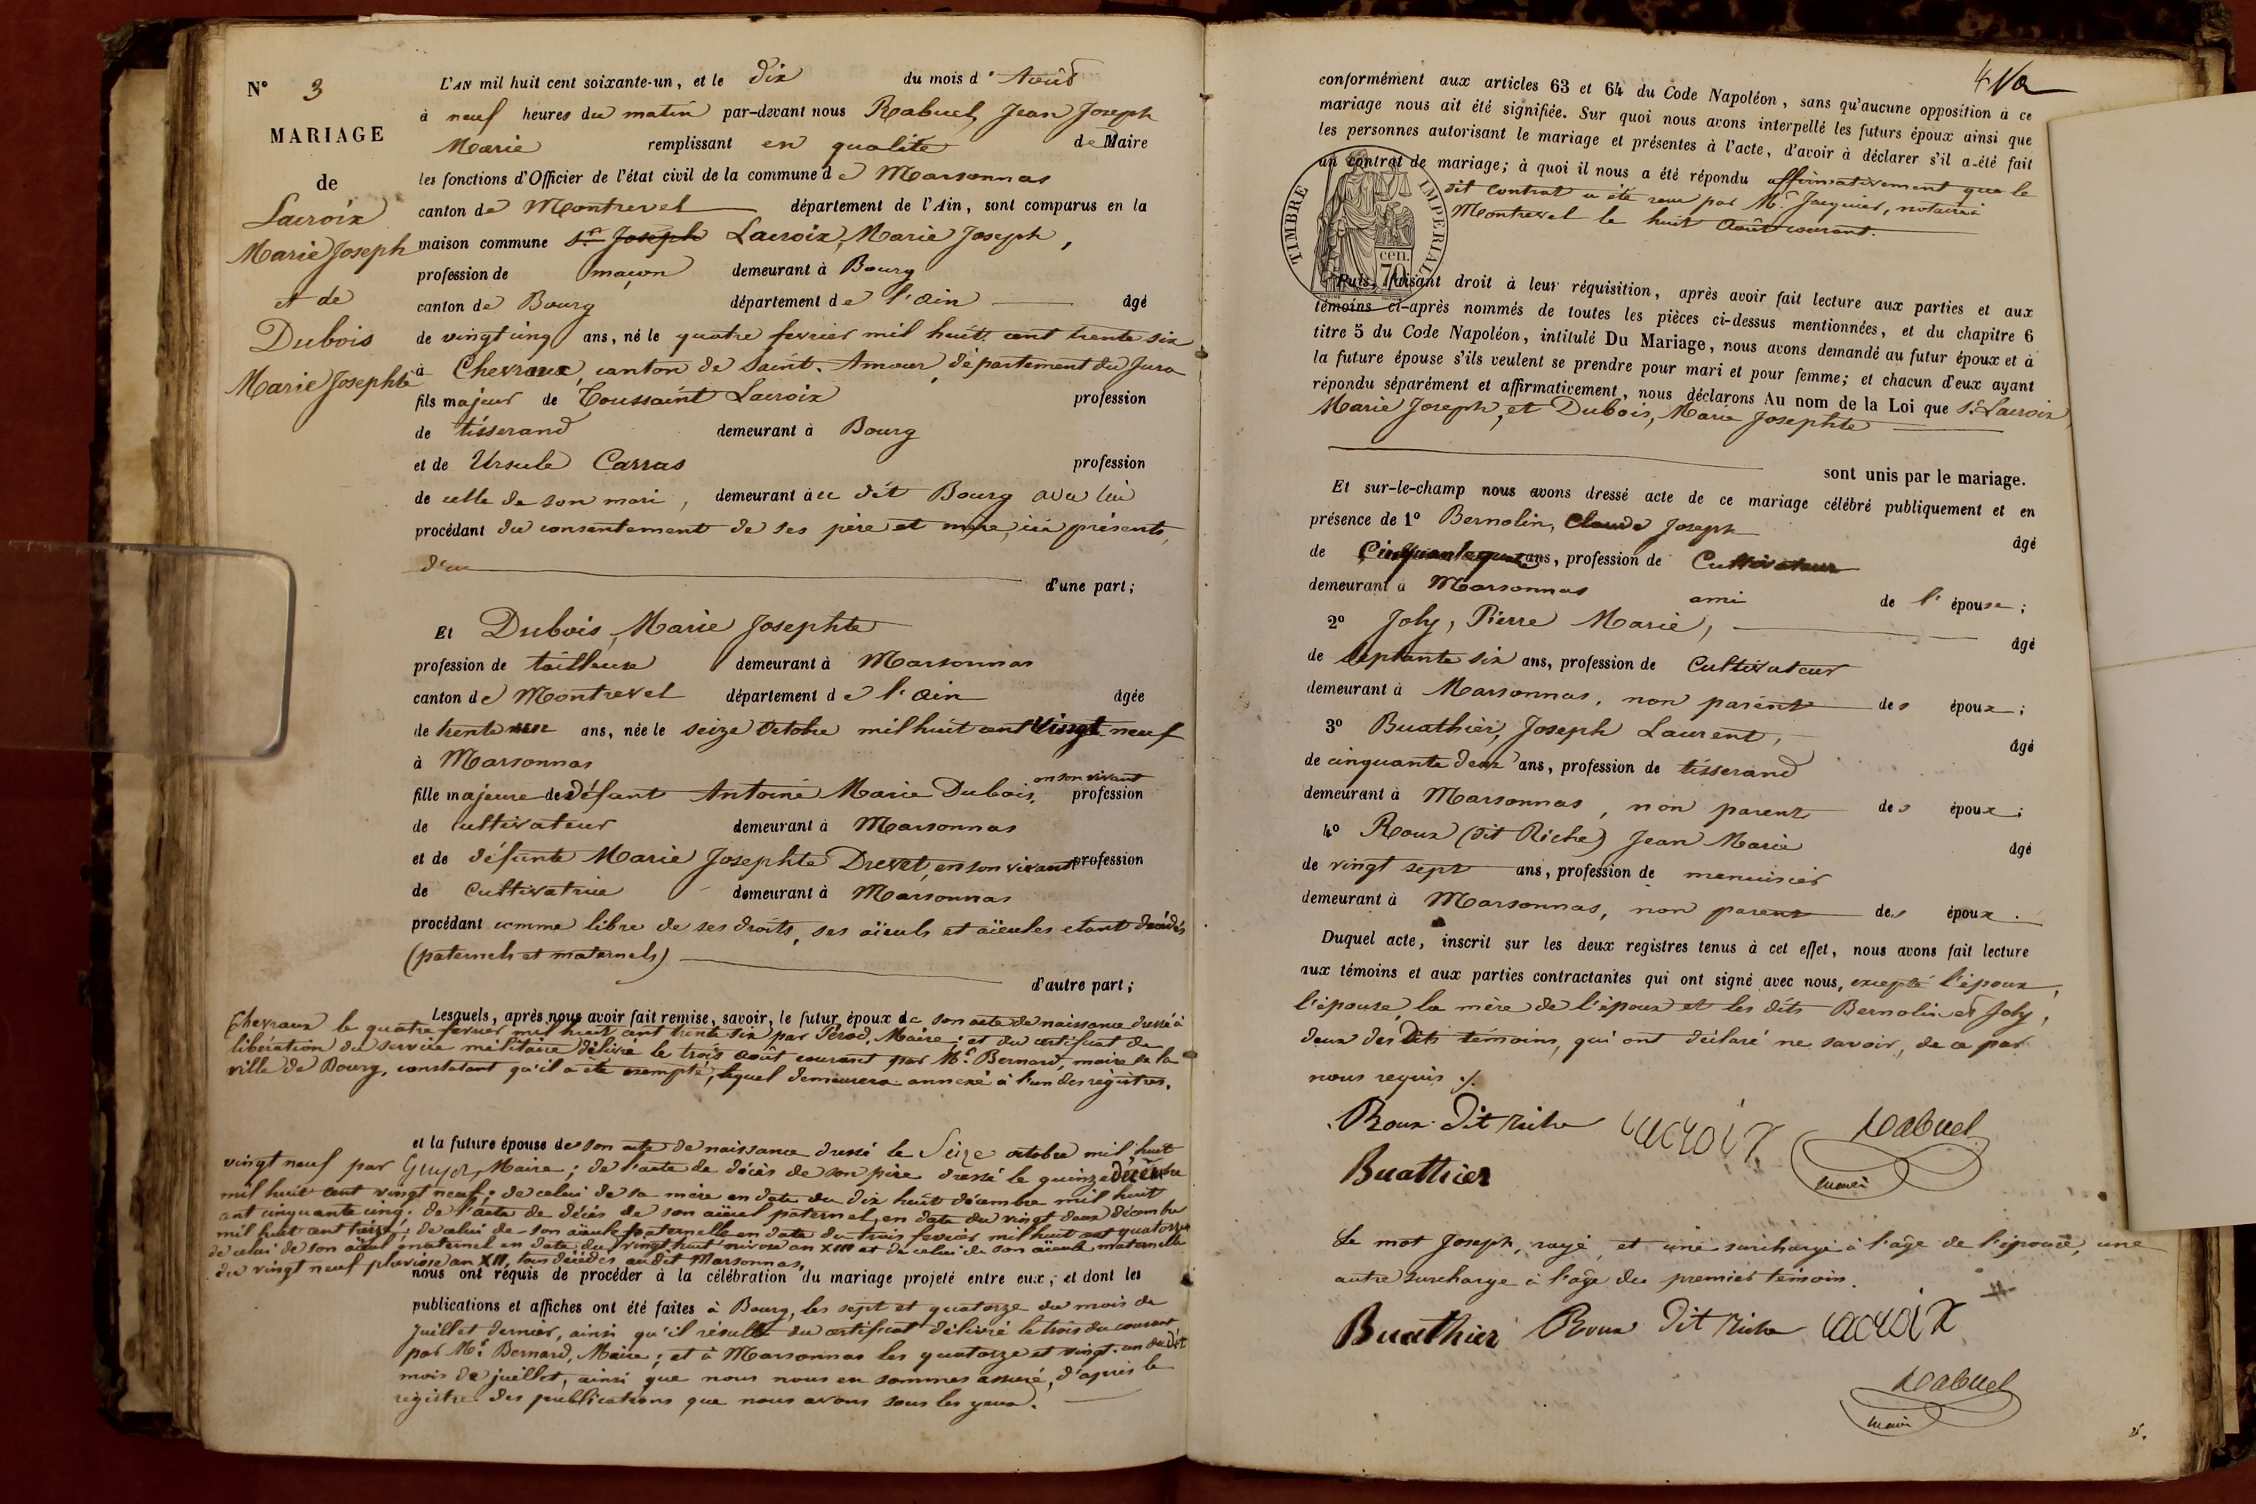 N° 3
MARIAGE
de
Lacroix
Marie Joseph
et de
Dubois
Marie Josephte
L'AN mil huit cent soixante-un, et le dix du mois d'Août
à neuf heures du matin par-devant nous Rabuel, Jean Joseph
Marie remplissant en qualité de Maire
les fonctions d'Officier de l'état civil de la commune de Marsonnas
canton de Montrevel département de l'Ain, sont comparus en la
maison commune Sr. Joseph Lacroix, Marie Joseph,
profession de maçon demeurant à Bourg
canton de Bourg département de l'Ain âgé
de vingt cinq ans, né le quatre fevrier mil huit cent trente six
à Chevraux, canton de Saint-Amour, département du Jura
fils majeur de Toussaint Lacroix profession
de tisserand demeurant à Bourg
et de Ursule Carras profession
de celle de son mari, demeurant au dit Bourg avec lui
procédant du consentement de ses père et mère, ici présents,
d'une part;
Et Dubois, Marie Josephte
profession de tailleuse demeurant à Marsonnas
canton de Montrevel département de l'Ain âgée
de trente ans, née le seize Octobre mil huit cent vingt neuf
à Marsonnas
fille majeure de défunt Antoine Marie Dubois, en son vivant profession
de cultivateur demeurant à Marsonnas
et de défunte Marie Josephte Drevet, en son vivant profession
de cultivatrice demeurant à Marsonnas
procédant comme libre de ses droits, ses aïeuls et aïeules étant décédés
(paternels et maternels)
d'autre part;
Lesquels, après nous avoir fait remise, savoir, le futur époux de son acte de naissance dressé à
Chevraux le quatre fevrier mil huit cent trente six par Perod, Maire; et du certificat de
libération du service militaire délivré le trois août courant par Mr. Bernard, maire de la
ville de Bourg, constatant qu'il a été exempté, lequel demeurera annexé à l'un des registres.
et la future épouse de son acte de naissance dressé le Seize octobre mil huit
vingt neuf par Guyot, Maire; de l'acte de décès de son père dressé le quinze décembre
mil huit cent vingt neuf; de celui de sa mère en date du dix huit décembre mil huit
cent cinquante cinq; de l'acte de décès de son aïeul paternel, en date du vingt deux décembre
mil huit cent treize; de celui de son aïeule paternelle en date du trois fevrier mil huit cent quatorze
de celui de son aïeul maternel en date du vingt huit nivose an XIII et de celui de son aïeule maternelle
du vingt neuf pluviose an XII, tous décédés au dit Marsonnas,
nous ont requis de procéder à la célébration du mariage projeté entre eux, et dont les
publications et affiches ont été faites à Bourg, les sept et quatorze du mois de
juillet dernier, ainsi qu'il résulte du certificat délivré le trois du courant
par Mr. Bernard, Maire; et à Marsonnas les quatorze et vingt-un du dit
mois de juillet, ainsi que nous nous en sommes assuré, d'après le
registre des publications que nous avons sous les yeux.
conformément aux articles 63 et 64 du Code Napoléon, sans qu'aucune opposition à ce
mariage nous ait été signifiée. Sur quoi nous avons interpellé les futurs époux ainsi que
les personnes autorisant le mariage et présentes à l'acte, d'avoir à déclarer s'il a été fait
un contrat de mariage; à quoi il nous a été répondu affirmativement que le
dit contrat a été reçu par Me. Jacquier, notaire à
Montrevel le huit Août courant.
TIMBRE IMPÉRIAL
cen.
70
Puis, faisant droit à leur réquisition, après avoir fait lecture aux parties et aux
témoins ci-après nommés de toutes les pièces ci-dessus mentionnées, et du chapitre 6
titre 5 du Code Napoléon, intitulé Du Mariage, nous avons demandé au futur époux et à
la future épouse s'ils veulent se prendre pour mari et pour femme; et chacun d'eux ayant
répondu séparément et affirmativement, nous déclarons Au nom de la Loi que Sr. Lacroix,
Marie Joseph, et Dubois, Marie Josephte
sont unis par le mariage.
Et sur-le-champ nous avons dressé acte de ce mariage célébré publiquement et en
présence de 1° Bernolin, Claude Joseph âgé
de ans, profession de Cultivateur
demeurant à Marsonnas ami de l'épouse;
2° Joly, Pierre Marie, âgé
de septante six ans, profession de Cultivateur
demeurant à Marsonnas, non parent des époux;
3° Buathier, Joseph Laurent, âgé
de cinquante deux ans, profession de tisserand
demeurant à Marsonnas, non parent des époux;
4° Roux (dit Riche) Jean Marie âgé
de vingt sept ans, profession de menuisier
demeurant à Marsonnas, non parent des époux.
Duquel acte, inscrit sur les deux registres tenus à cet effet, nous avons fait lecture
aux témoins et aux parties contractantes qui ont signé avec nous, excepté l'époux,
l'épouse, la mère de l'époux et les dits Bernolin et Joly,
deux des dits témoins, qui ont déclaré ne savoir, de ce par
nous requis ./.
Roux dit riche Lacroix Rabuel
maire
Buathier
Le mot Joseph, rayé, et une surcharge à l'âge de l'épouse, une
autre surcharge à l'âge du premier témoin.
Buathier Roux dit riche Lacroix
Rabuel
maire